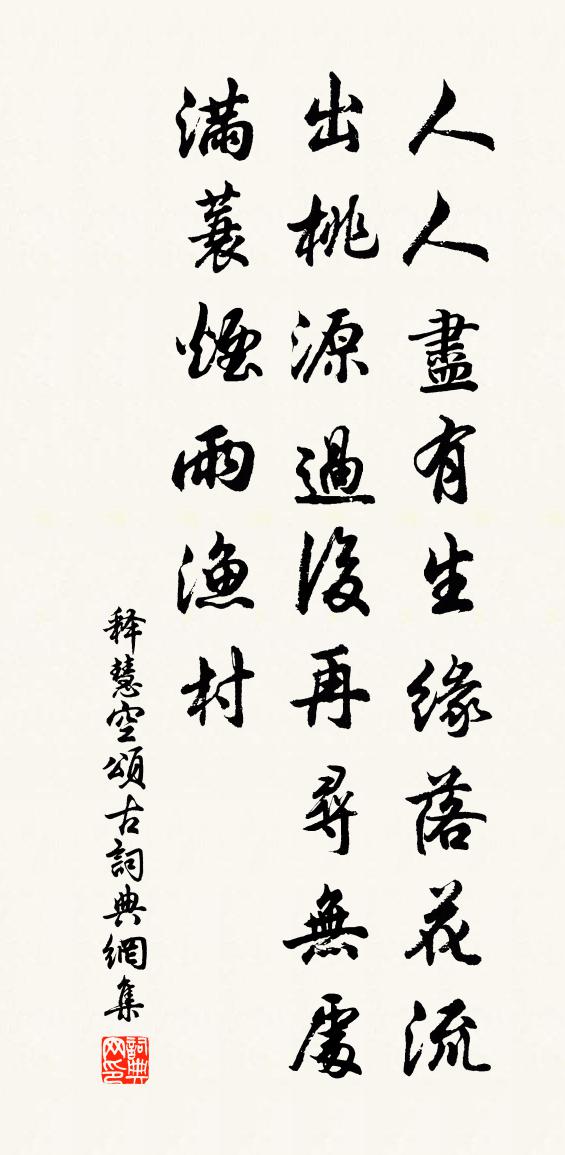 人人盡有生緣落花流
出桃源過後再尋無處
滿蓑煙雨漁村
释慧空頌古詞典網集
詞典网印